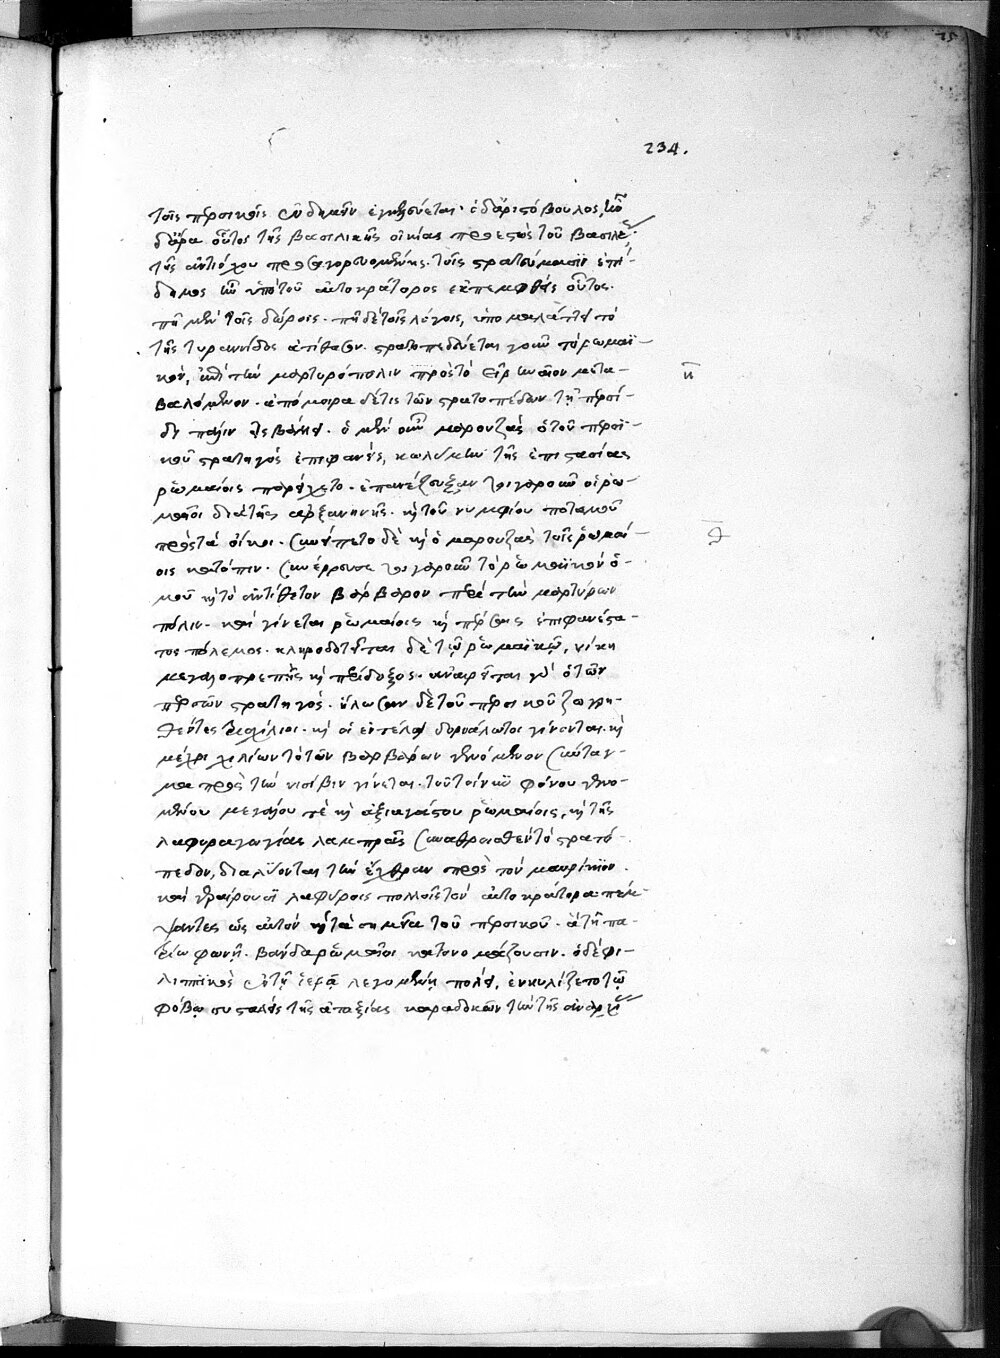 234.
τοῖς περσικοῖς ἐνδημεῖν ἐγκελεύεται. ὁ δ' ἀριστόβουλος,
οὗτος τῆς βασιλικῆς οἰκίας προεστὼς τοῦ βασιλέ
τῆς ἀντιόχου προσαγορευομένης. τοῖς στρατεύμασιν ἐπί-
δημος ὑπὸ τοῦ αὐτοκράτορος ἐκπεμφθεὶς οὗτος.
πῆ μὲν τοῖς δώροις. πῆ δὲ τοῖς λόγοις, τὸ
τῆς τυραννίδος ἀτίθασον. στρατοπεδεύεται γοῦν τὸ ρωμαϊ-
κόν, ἐπὶ τὴν μαρτυρόπολιν πρὸς τὸ μετα-
βαλόμενον. ἀπόμοιρα δέ τις τῶν στρατοπέδων τῇ περσί-
δι πάλιν ἐσβάλλει. ὁ μὲν οὖν μαρουζᾶς ὁ τοῦ περσι-
κοῦ στρατηγὸς ἐπιφανεὶς, κωλύμην τῆς ἐπιστασίας
ῥωμαίοις παρείχετο. ἐπανέζευξαν τοιγαροῦν οἱ ῥω-
μαῖοι διὰ τῆς ἀρξανηνῆς. καὶ τοῦ νυμφίου ποταμοῦ
πρὸς τὰ οἴκοι. συνείπετο δὲ καὶ ὁ μαρουζᾶς τοῖς ῥωμαί-
οις κατόπιν. συνέρρευσε τοιγαροῦν τὸ ῥωμαϊκὸν ὁ-
μοῦ καὶ τὸ ἀντίθετον βάρβαρον περὶ τὴν μαρτύρων
πόλιν. καὶ γίνεται ῥωμαίοις καὶ πέρσαις ἐπιφανέστα-
τος πόλεμος. κληροδοτεῖται δὲ τῷ ῥωμαϊκῷ, νίκη
μεγαλοπρεπὴς καὶ περίδοξος. ἀναιρεῖται γὰρ ὁ τῶν
περσῶν στρατηγός. ἥλωσαν δὲ τοῦ περσικοῦ ζωγρη-
θέντες τρισχίλιοι. καὶ οἱ ἐν τέλει δορυάλωτοι γίνονται. καὶ
μέχρι χιλίων τὸ τῶν βαρβάρων γενόμενον σύνταγ-
μα πρὸς τὴν νίσιβιν γίνεται. τοῦ τοίνυν φόνου γενο-
μένου μεγάλου τὲ καὶ ἀξιαγάστου ῥωμαίοις, καὶ τῆς
λαφυραγωγίας λαμπρᾶς συναθροισθεν τὸ στρατό-
πεδον, διαλύονται τὴν ἔχθραν πρὸς τὸν μαυρίκιον.
καὶ γεραίρουσι λαφύροις πολλοῖς τὸν αὐτοκράτορα. πέμ-
ψαντες ὡς αὐτὸν καὶ τὰ σημεῖα τοῦ περσικοῦ. ἃ τῇ πα-
τρίῳ φωνῇ. βάνδα ῥωμαῖοι κατονομάζουσιν. ὁ δὲ φι-
λιππικὸς ἐν τῇ ἱερᾷ λεγομένῃ πόλει, ἐνκυλίζετο τῷ
φόβῳ συσταλεὶς τῆς ἀταξίας καραδοκῶν τὴν τῆς ἀναρχί